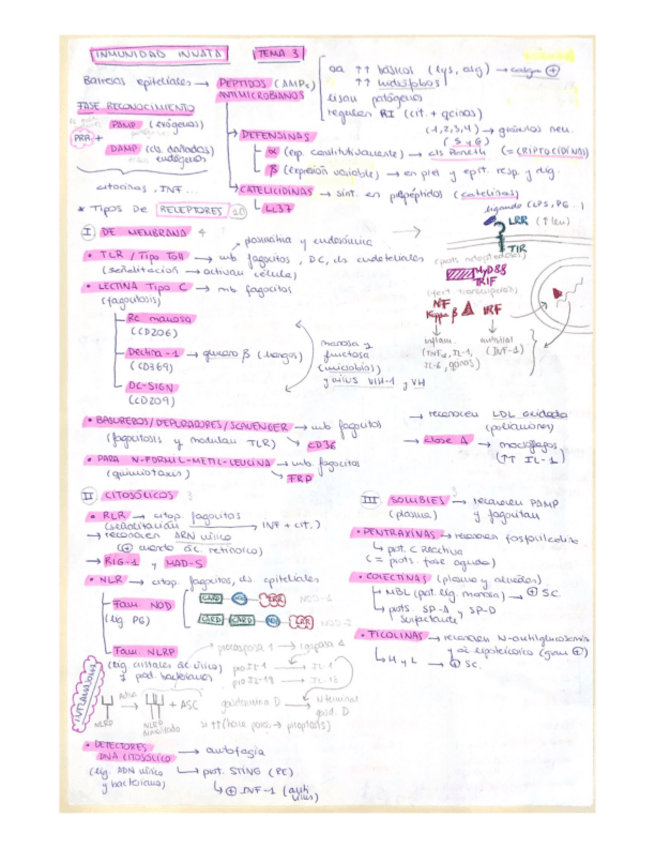 INMUNIDAD INNATA TEMA 3
Barreras epiteliales → PEPTIDOS (AMPs)
ANTIMICROBIANOS
aa ↑↑ básicos (lys, arg) → carga ⊕
↑↑ hidrófobos
lisan patógenos
regulan RI (cit. + qcinas)
FASE RECONOCIMIENTO
PRR + PAMP (exógenos)
DAMP (cls dañadas)
endógenos
citocinas, INF...
DEFENSINAS
(-1,2,3,4) → gránulos neu.
(5 y 6)
α (exp. constitutivamente) → cls Paneth (= CRIPTOCIDINAS)
β (expresión variable) → en piel y epit. resp. y dig.
CATELICIDINAS → sint. en propéptidos (catelinas)
LL37
* TIPOS DE RECEPTORES
ligando (LPS, PG..)
LRR (↑leu)
TIR
I DE MEMBRANA 4
plasmática y endosómica
• TLR / Tipo Toll → mb fagocitos, DC, cls endoteliales
(señalización → activan célula)
• LECTINA TIPO C → mb fagocitos
(fagocitosis)
(prots. adaptadoras)
MyD88
TRIF
(fact. transcripción)
NF Kappa β IRF
inflam. antiviral
(TNFα, IL-1, IL-6, ganas) (INF-1)
Rc manosa
(CD206)
Dectina-1 → glucano β (hongos)
(CD369)
DC-SIGN
(CD209)
manosa y
fructosa
(microbios)
y virus VIH-1 y VH
• BASUREROS/DEPURADORES/SCAVENGER → mb fagocitos
(fagocitosis y modulan TLR) → CD36
→ reconocen LDL oxidada
(polianiones)
→ clase A → macrófagos
(↑↑ IL-1)
• PARA N-FORMIL-METIL-LEUCINA → mb. fagocitos
(quimiotaxis) → FRP
II CITOSÓLICOS 3
• RLR → citop. fagocitos
(señalización → INF + cit.)
→ reconocen ARN vírico
(⊕ ácido retinoico)
→ RIG-1 y MAD-5
• NLR → citop. fagocitos, cls epiteliales
Fam. NOD
(lig. PG)
CARD NOD LRR NOD-1
CARD CARD NOD LRR NOD-2
Fam. NLRP
(lig. cristales ác úrico)
y prod. bacterianos)
procaspasa 1 → caspasa 1
pro IL-1 → IL-1
pro IL-18 → IL-18
INFLAMASOMA
NLRP → NLRP + ASC
gasdermina D → N terminal gasd. D
si ↑↑ (hace poros → piroptosis)
• DETECTORES DNA CITOSÓLICO → autofagia
(lig. ADN vírico y bacteriano) → prot. STING (RE)
→ ⊕ INF-1 (anti virus)
III SOLUBLES → reconocen PAMP
(plasma) y fagocitan
• PENTRAXINAS → reconocen fosforilcolina
↳ prot. C Reactiva
(= prots. fase aguda)
• COLECTINAS (plasma y alveolos)
↳ MBL (prot. lig. manosa) → ⊕ SC.
↳ prots. SP-A y SP-D
surfactante
• FICOLINAS → reconocen N-acetilglucosamina
y ác lipoteicoico (gram ⊕)
↳ H y L → ⊕ SC.